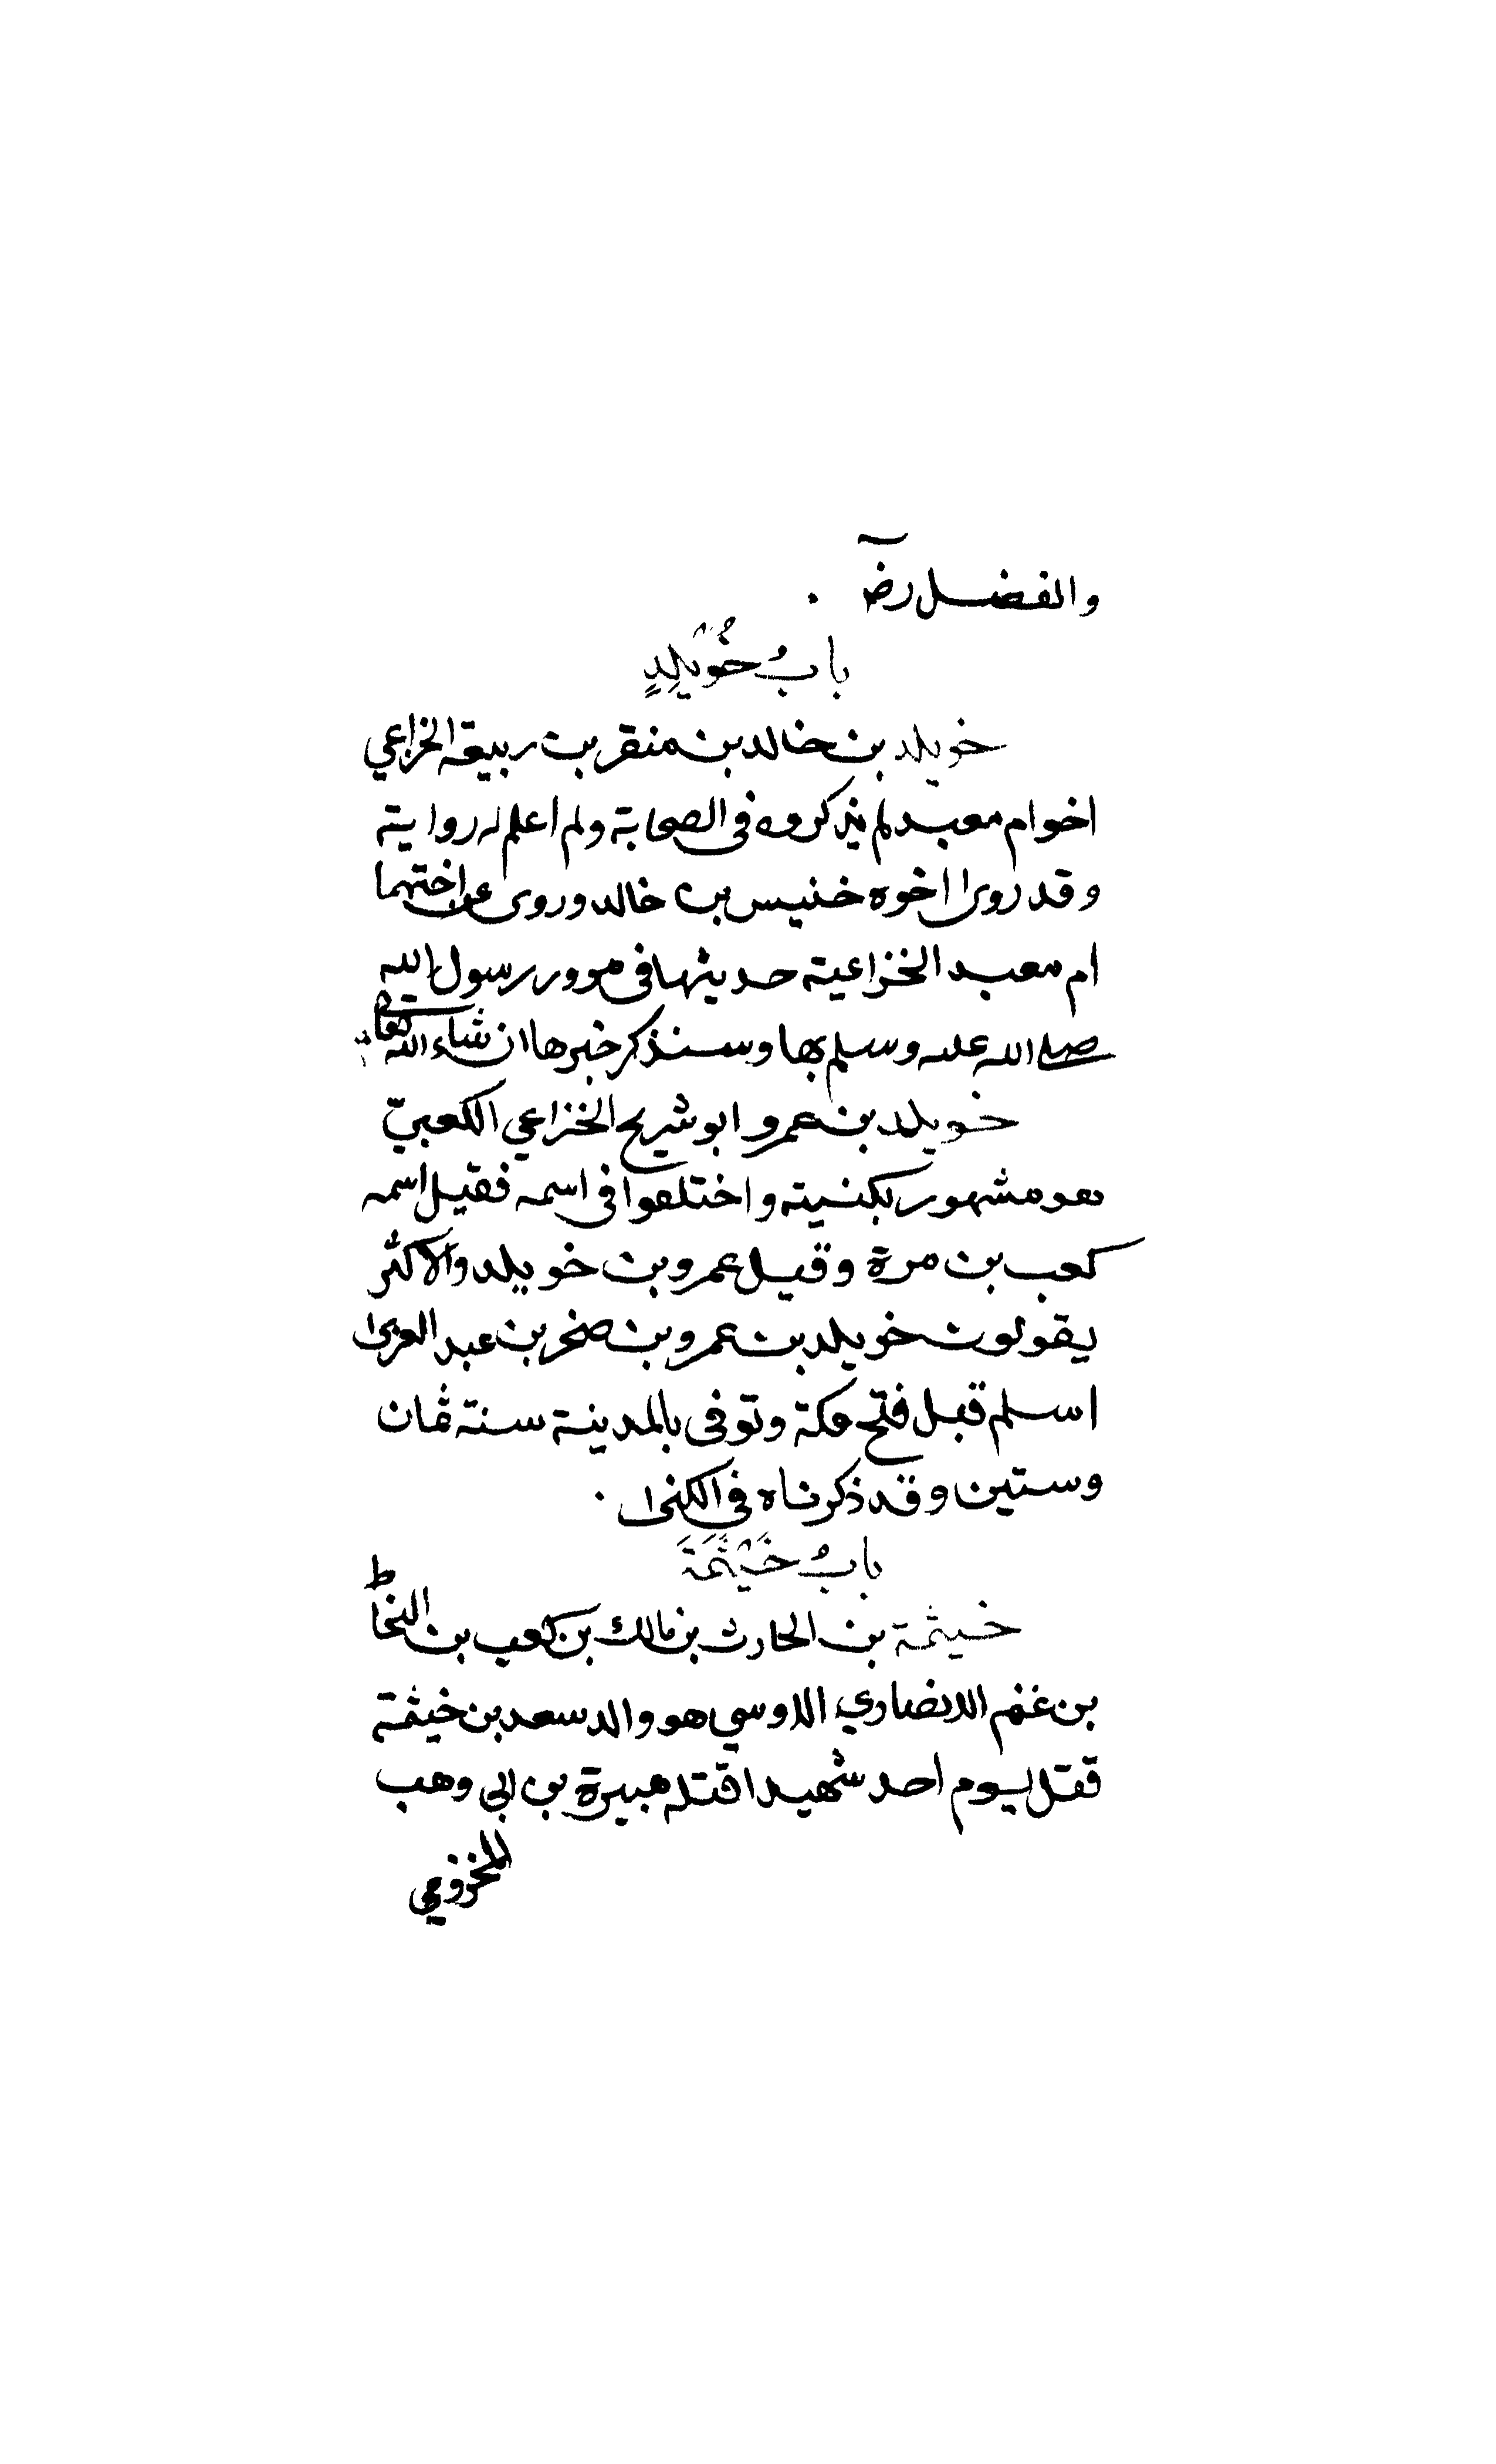 والفضل رضـ .
بابُ خُوَيْلِدٍ
خويلد بن خالد بن منقر بن ربيعة الخزاعي
اخو ام معبد لم يذكروه فى الصحابة ولم اعلم له رواية
وقد روى اخوه خنيس بن خالد وروى عن اختهما
ام معبد الخزاعية حديثها فى مرور رسول الله
صلى الله عليه وسلم بها وسنذكر خبرها ان شاء الله تعالى
خويلد بن عمرو ابو شريح الخزاعي الكعبيّ
هو مشهور بكنيته واختلفوا فى اسمه فقيل اسمه
كعب بن مرة وقيل عمرو بن خويلد والاكثر
يقولون خويلد بن عمرو بن صخر بن عبد العزى
اسلم قبل فتح مكة وتوفى بالمدينة سنة ثمان
وستين وقد ذكرناه فى الكنى .
بابُ خَيْثَمَةَ
خيثمة بن الحارث بن مالك بن كعب بن النحاط
بن غنم الانصاري الاوسي هو والد سعد بن خيثمة
قتل يوم احد شهيدا قتله هبيرة بن ابي وهب
المخزومي